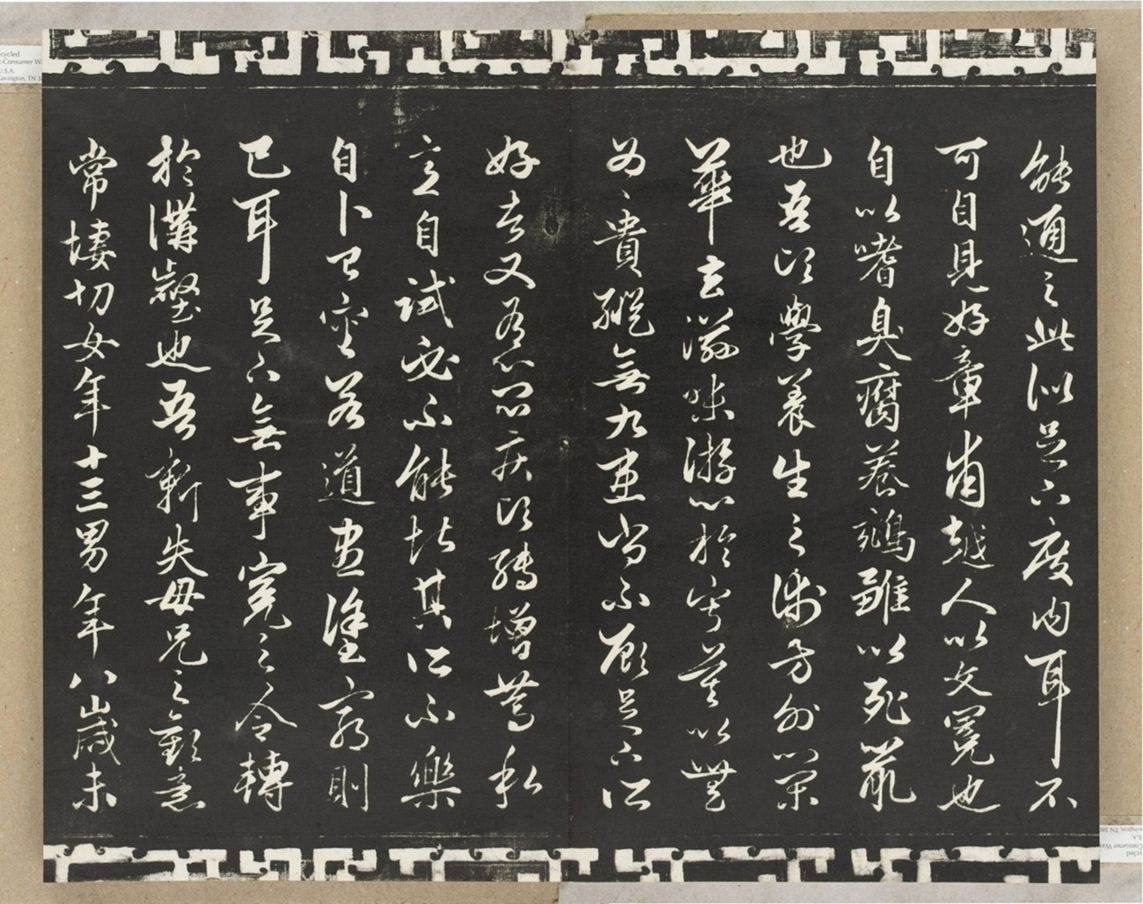 能通之此似足下度內耳不
可自見好章甫越人以文冕也
自以嗜臭腐養鵷雛以死鼠
也吾頃學養生之術方外以榮
華去滋味游心於寂莫以無
為〻貴縱無九患尚不顧足下所
好者又有心悶疾頃轉增篤私
意自試必不能堪其所不樂
自卜已審若道盡塗窮則
已耳足下無事冤之令轉
於溝壑也吾新失母兄之歡意
常悽切女年十三男年八歲未
ecycled
-Consumer W
U.S.A.
Covington, TN 3